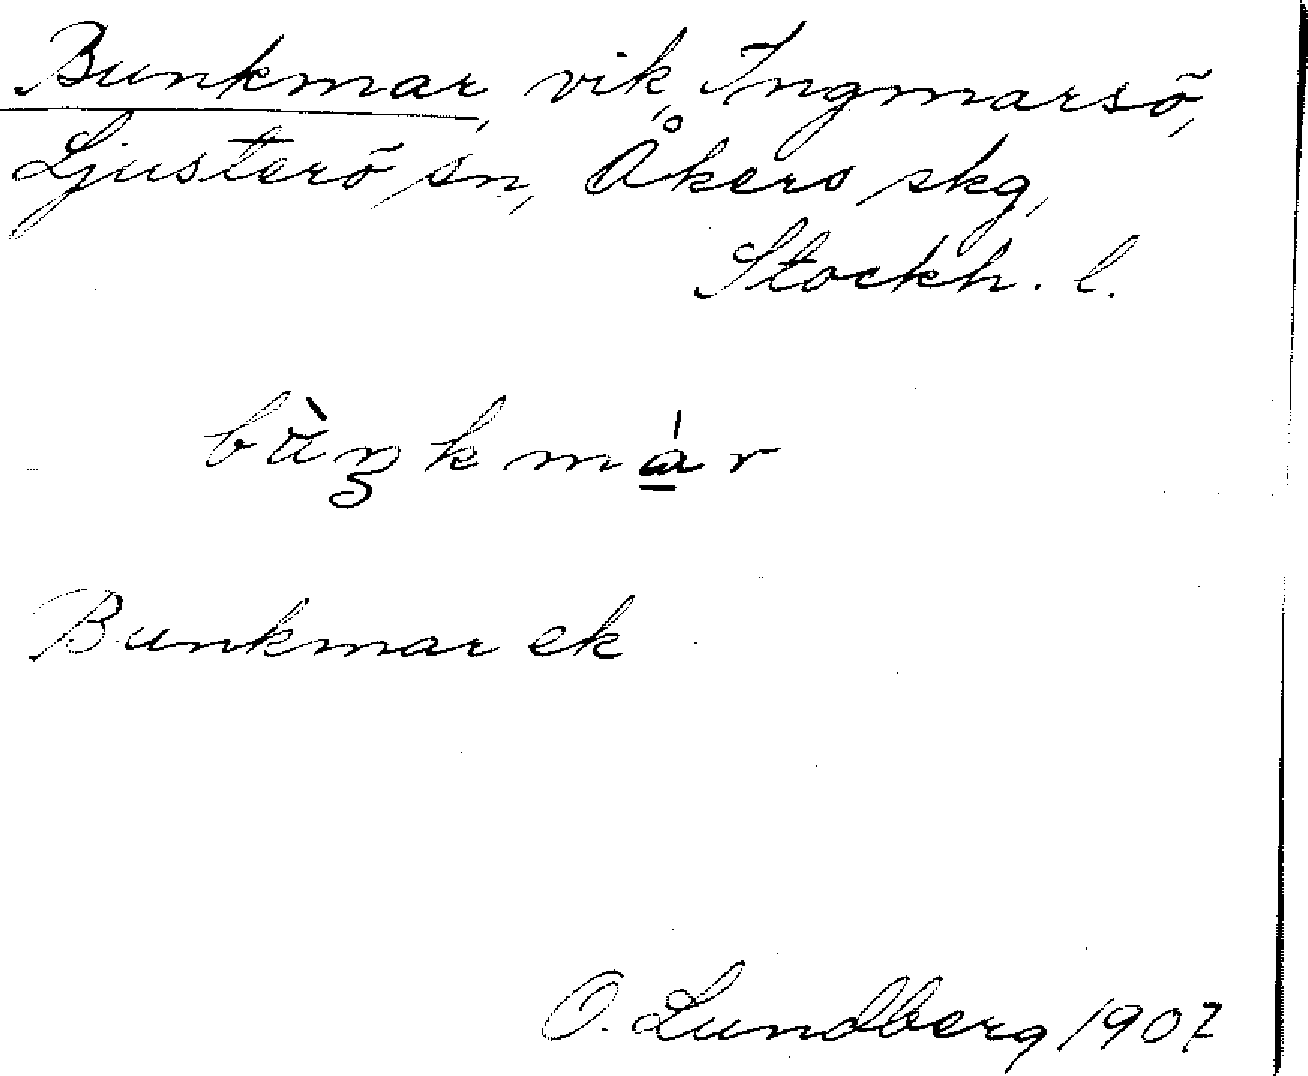 Bunkmar, vik, Ingmarsö,
Ljusterö sn, Åkers skg,
Stockh. l.
bùŋkmár
Bunkmar ek
O. Lundberg 1907